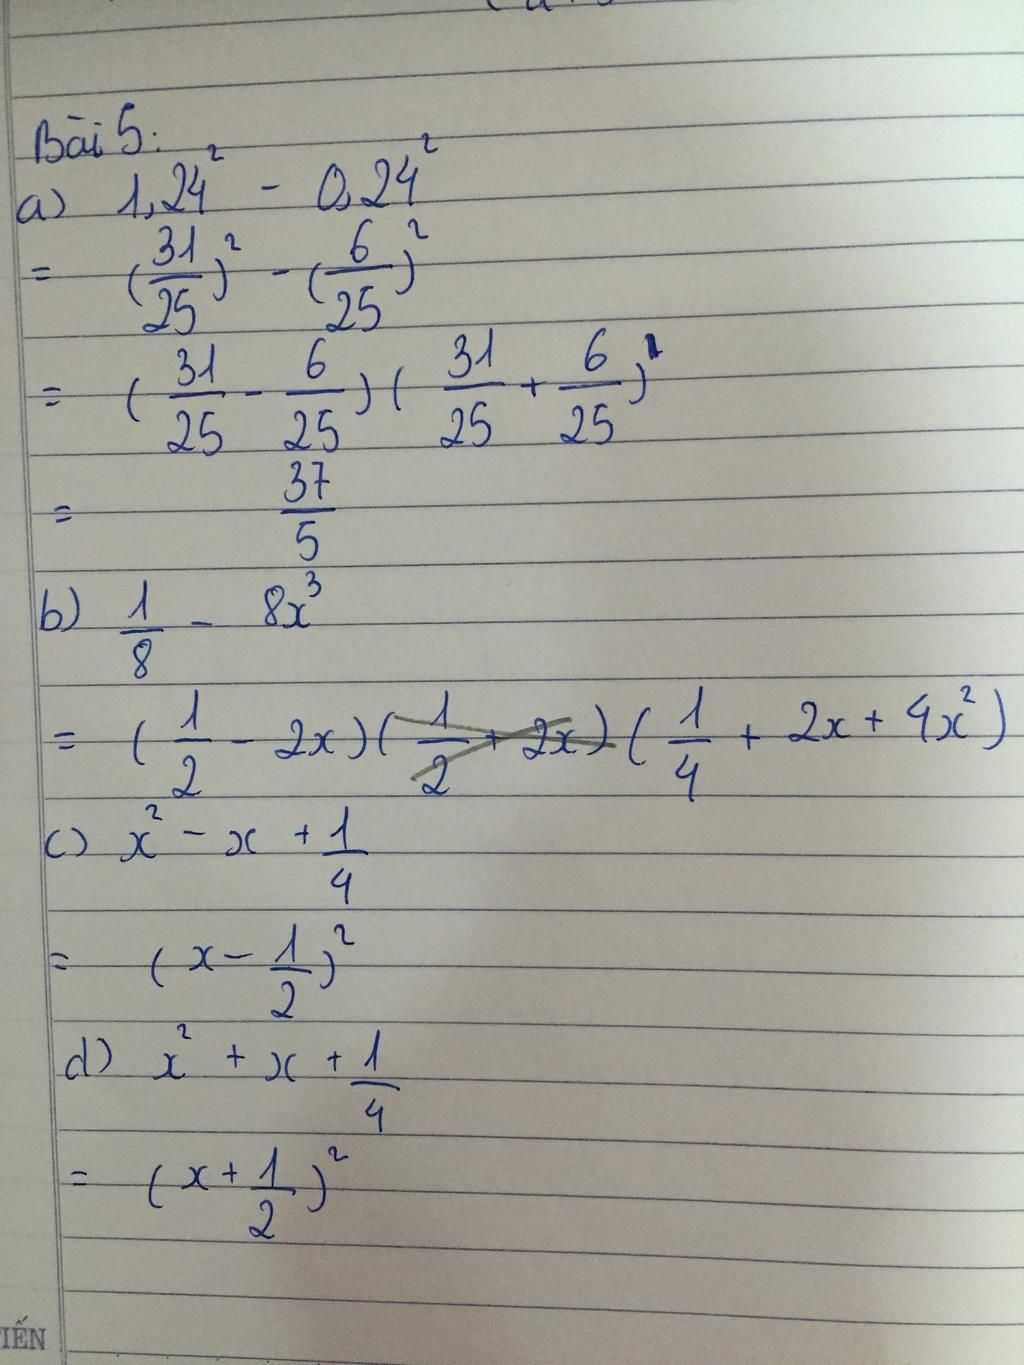 Bài 5:
a) 1,24² - 0,24²
= (31/25)² - (6/25)²
= (31/25 - 6/25)(31/25 + 6/25)
= 37/5
b) 1/8 - 8x³
= (1/2 - 2x)(1/2 + 2x)(1/4 + 2x + 4x²)
c) x² - x + 1/4
= (x - 1/2)²
d) x² + x + 1/4
= (x + 1/2)²
IẾN